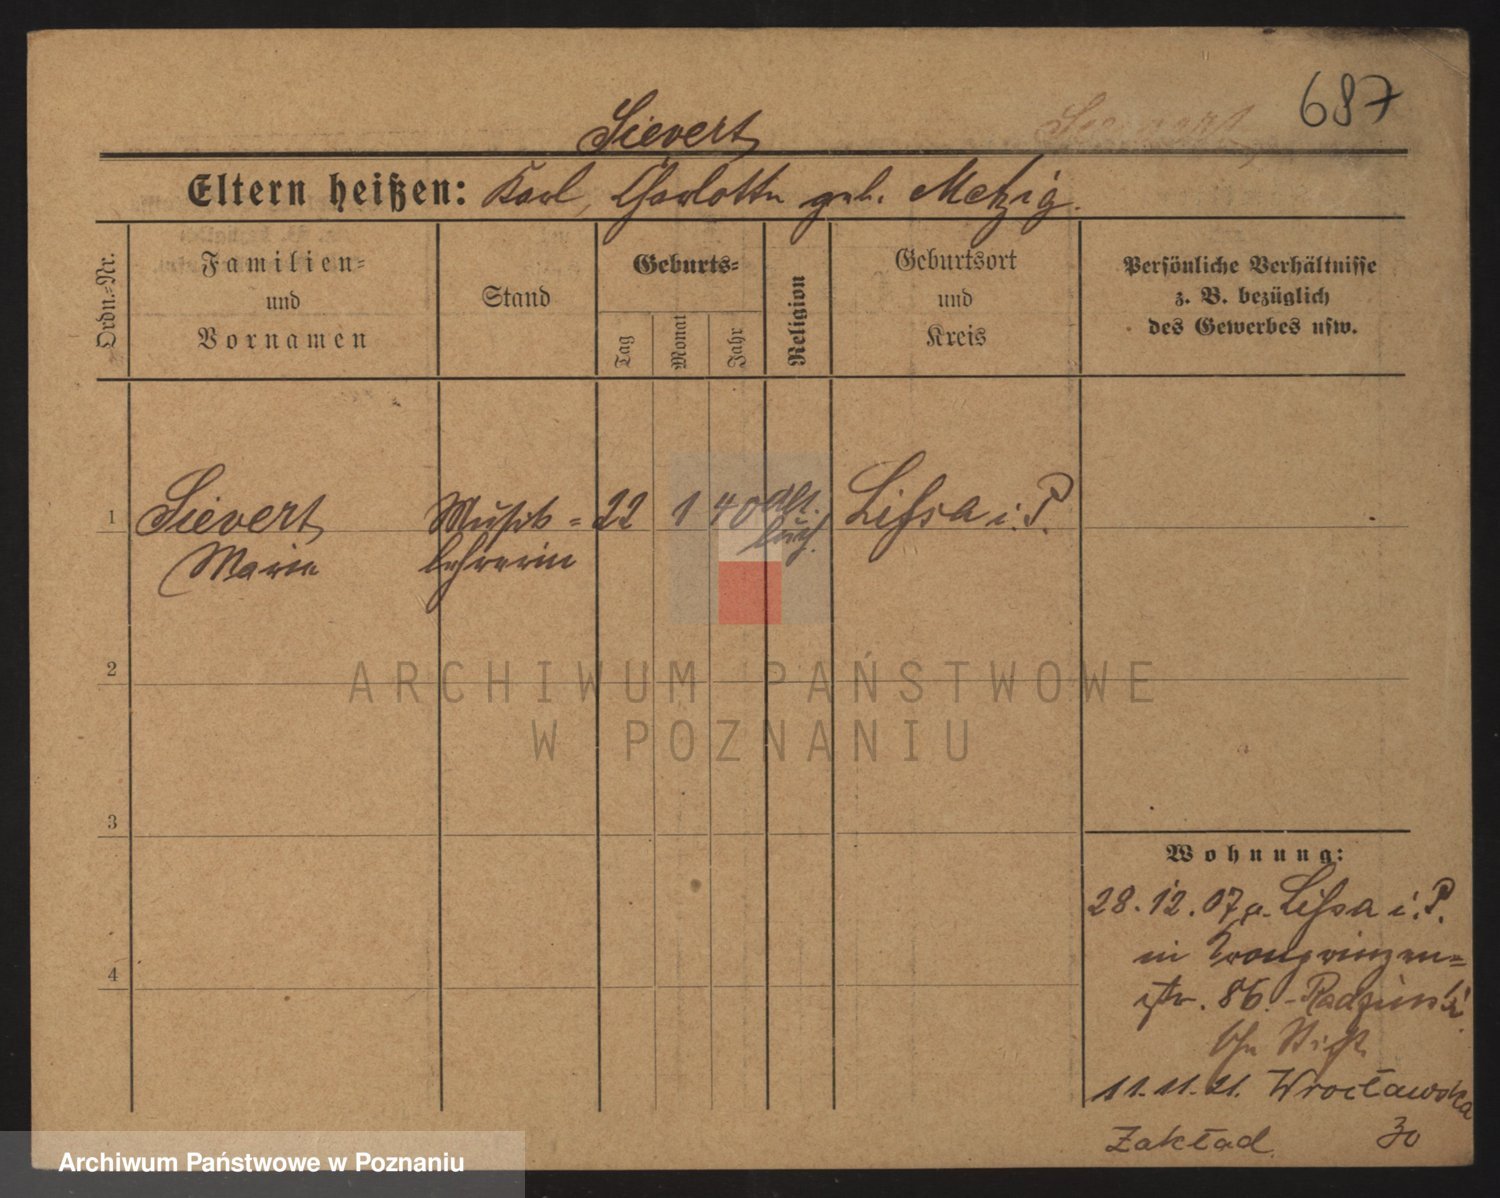 687
Sievert
Eltern heißen: Karl, Charlotte geb. Metzig.
Ordn.-Nr.
Familien-
und
Vornamen
Stand
Geburts-
Tag
Monat
Jahr
Religion
Geburtsort
und
Kreis
Persönliche Verhältnisse
z. B. bezüglich
des Gewerbes usw.
1 Sievert Musik- 22 1 40 alt. Lissa i. P.
Marie lehrerin luth.
2
3
4
Wohnung:
28.12.07 Lissa i. P.
in Kronprinzen-
str. 86. Radziński
Stift
11.11.21. Wrocławska
Zakład 30
ARCHIWUM PAŃSTWOWE
W POZNANIU
Archiwum Państwowe w Poznaniu